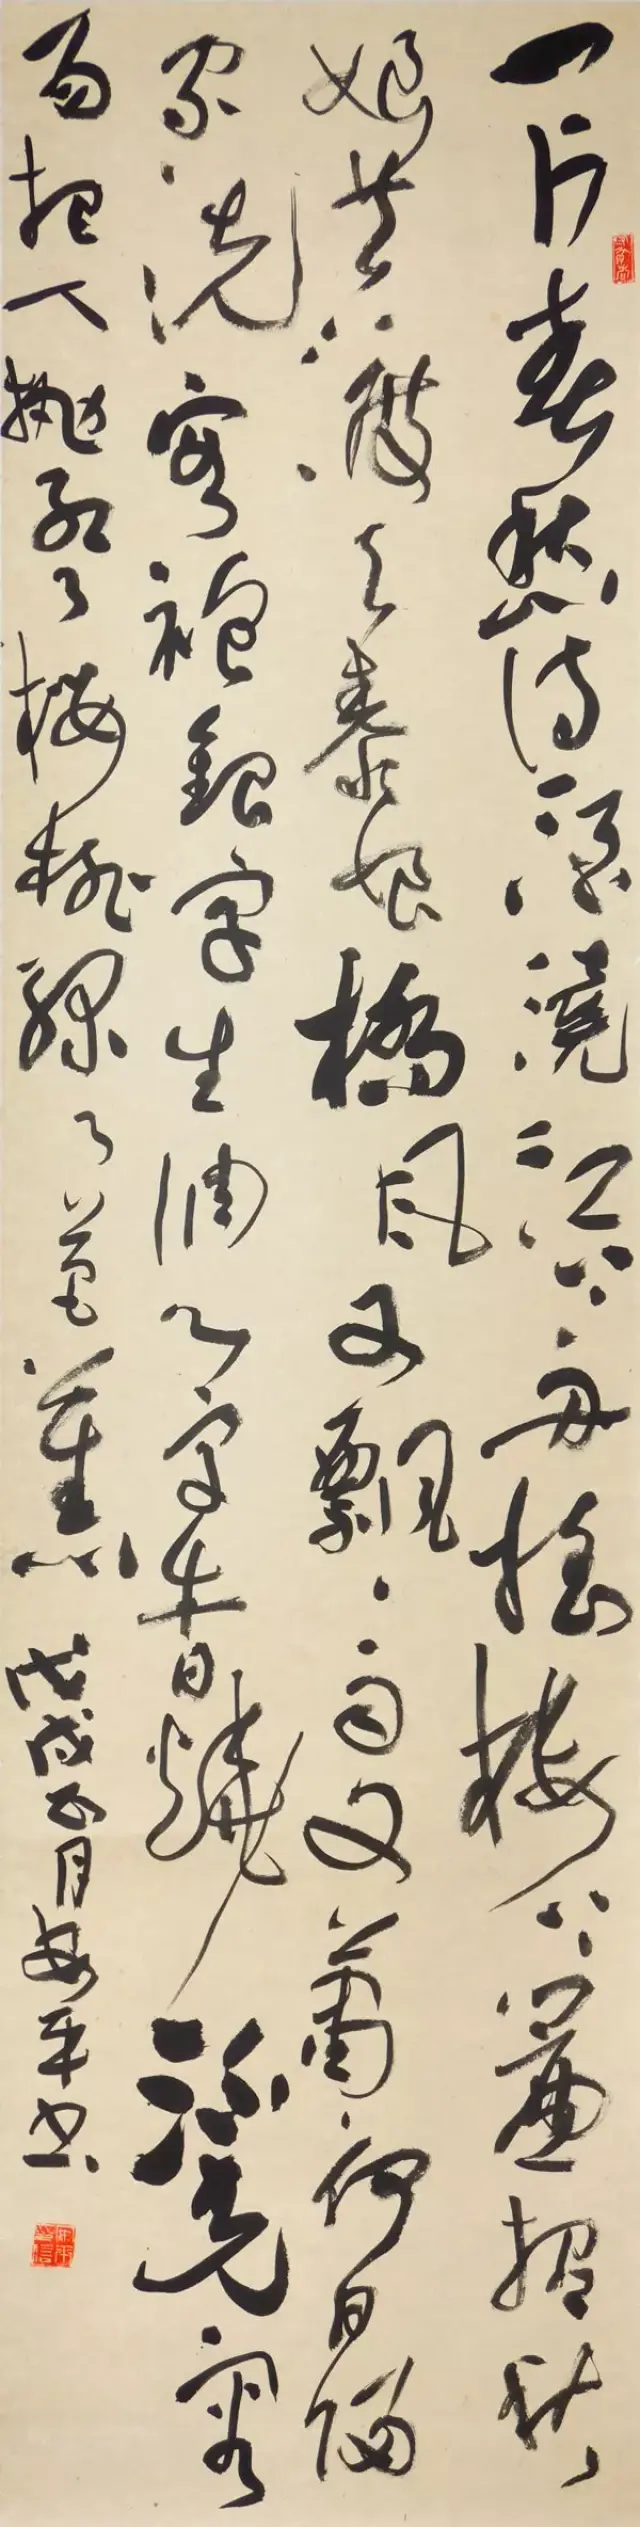 一片春愁待酒澆江上舟搖樓上簾招秋
娘渡與泰娘橋風又飄〻雨又蕭何日歸
家洗客袍銀字生調心字香燒流光容
易把人拋紅了櫻桃綠了芭蕉 戊戌正月安平書